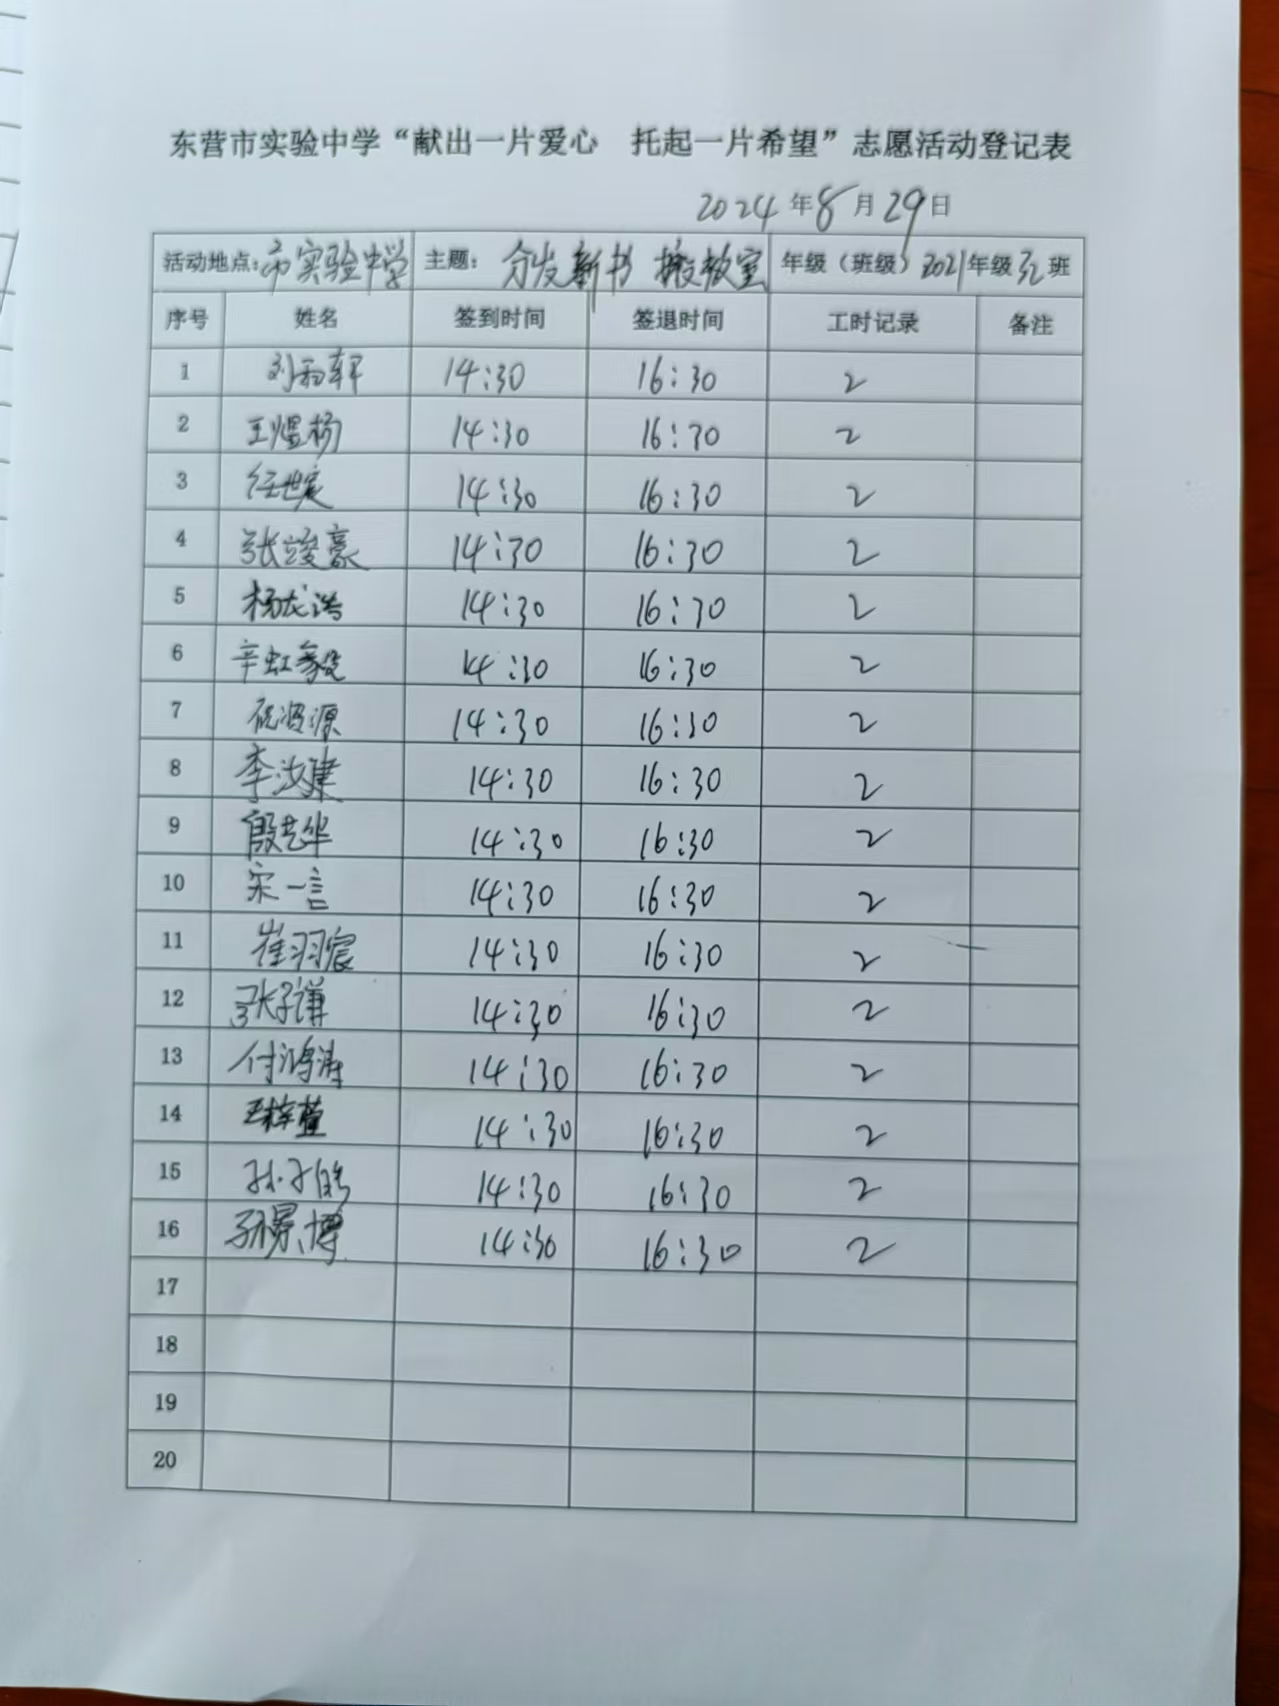 东营市实验中学“献出一片爱心 托起一片希望”志愿活动登记表
2024年8月29日
活动地点:市实验中学 主题: 分发新书 搬教室 年级(班级)2021年级32班
序号 姓名 签到时间 签退时间 工时记录 备注
1 刘雨轩 14:30 16:30 2
2 王煜杨 14:30 16:30 2
3 任世宸 14:30 16:30 2
4 张竣豪 14:30 16:30 2
5 杨龙浩 14:30 16:30 2
6 辛虹 14:30 16:30 2
7 源 14:30 16:30 2
8 李汝建 14:30 16:30 2
9 殷艺华 14:30 16:30 2
10 宋一言 14:30 16:30 2
11 崔羽宸 14:30 16:30 2
12 张子谦 14:30 16:30 2
13 付鸿涛 14:30 16:30 2
14 王梓萱 14:30 16:30 2
15 孙子皓 14:30 16:30 2
16 孙景博 14:30 16:30 2
17
18
19
20